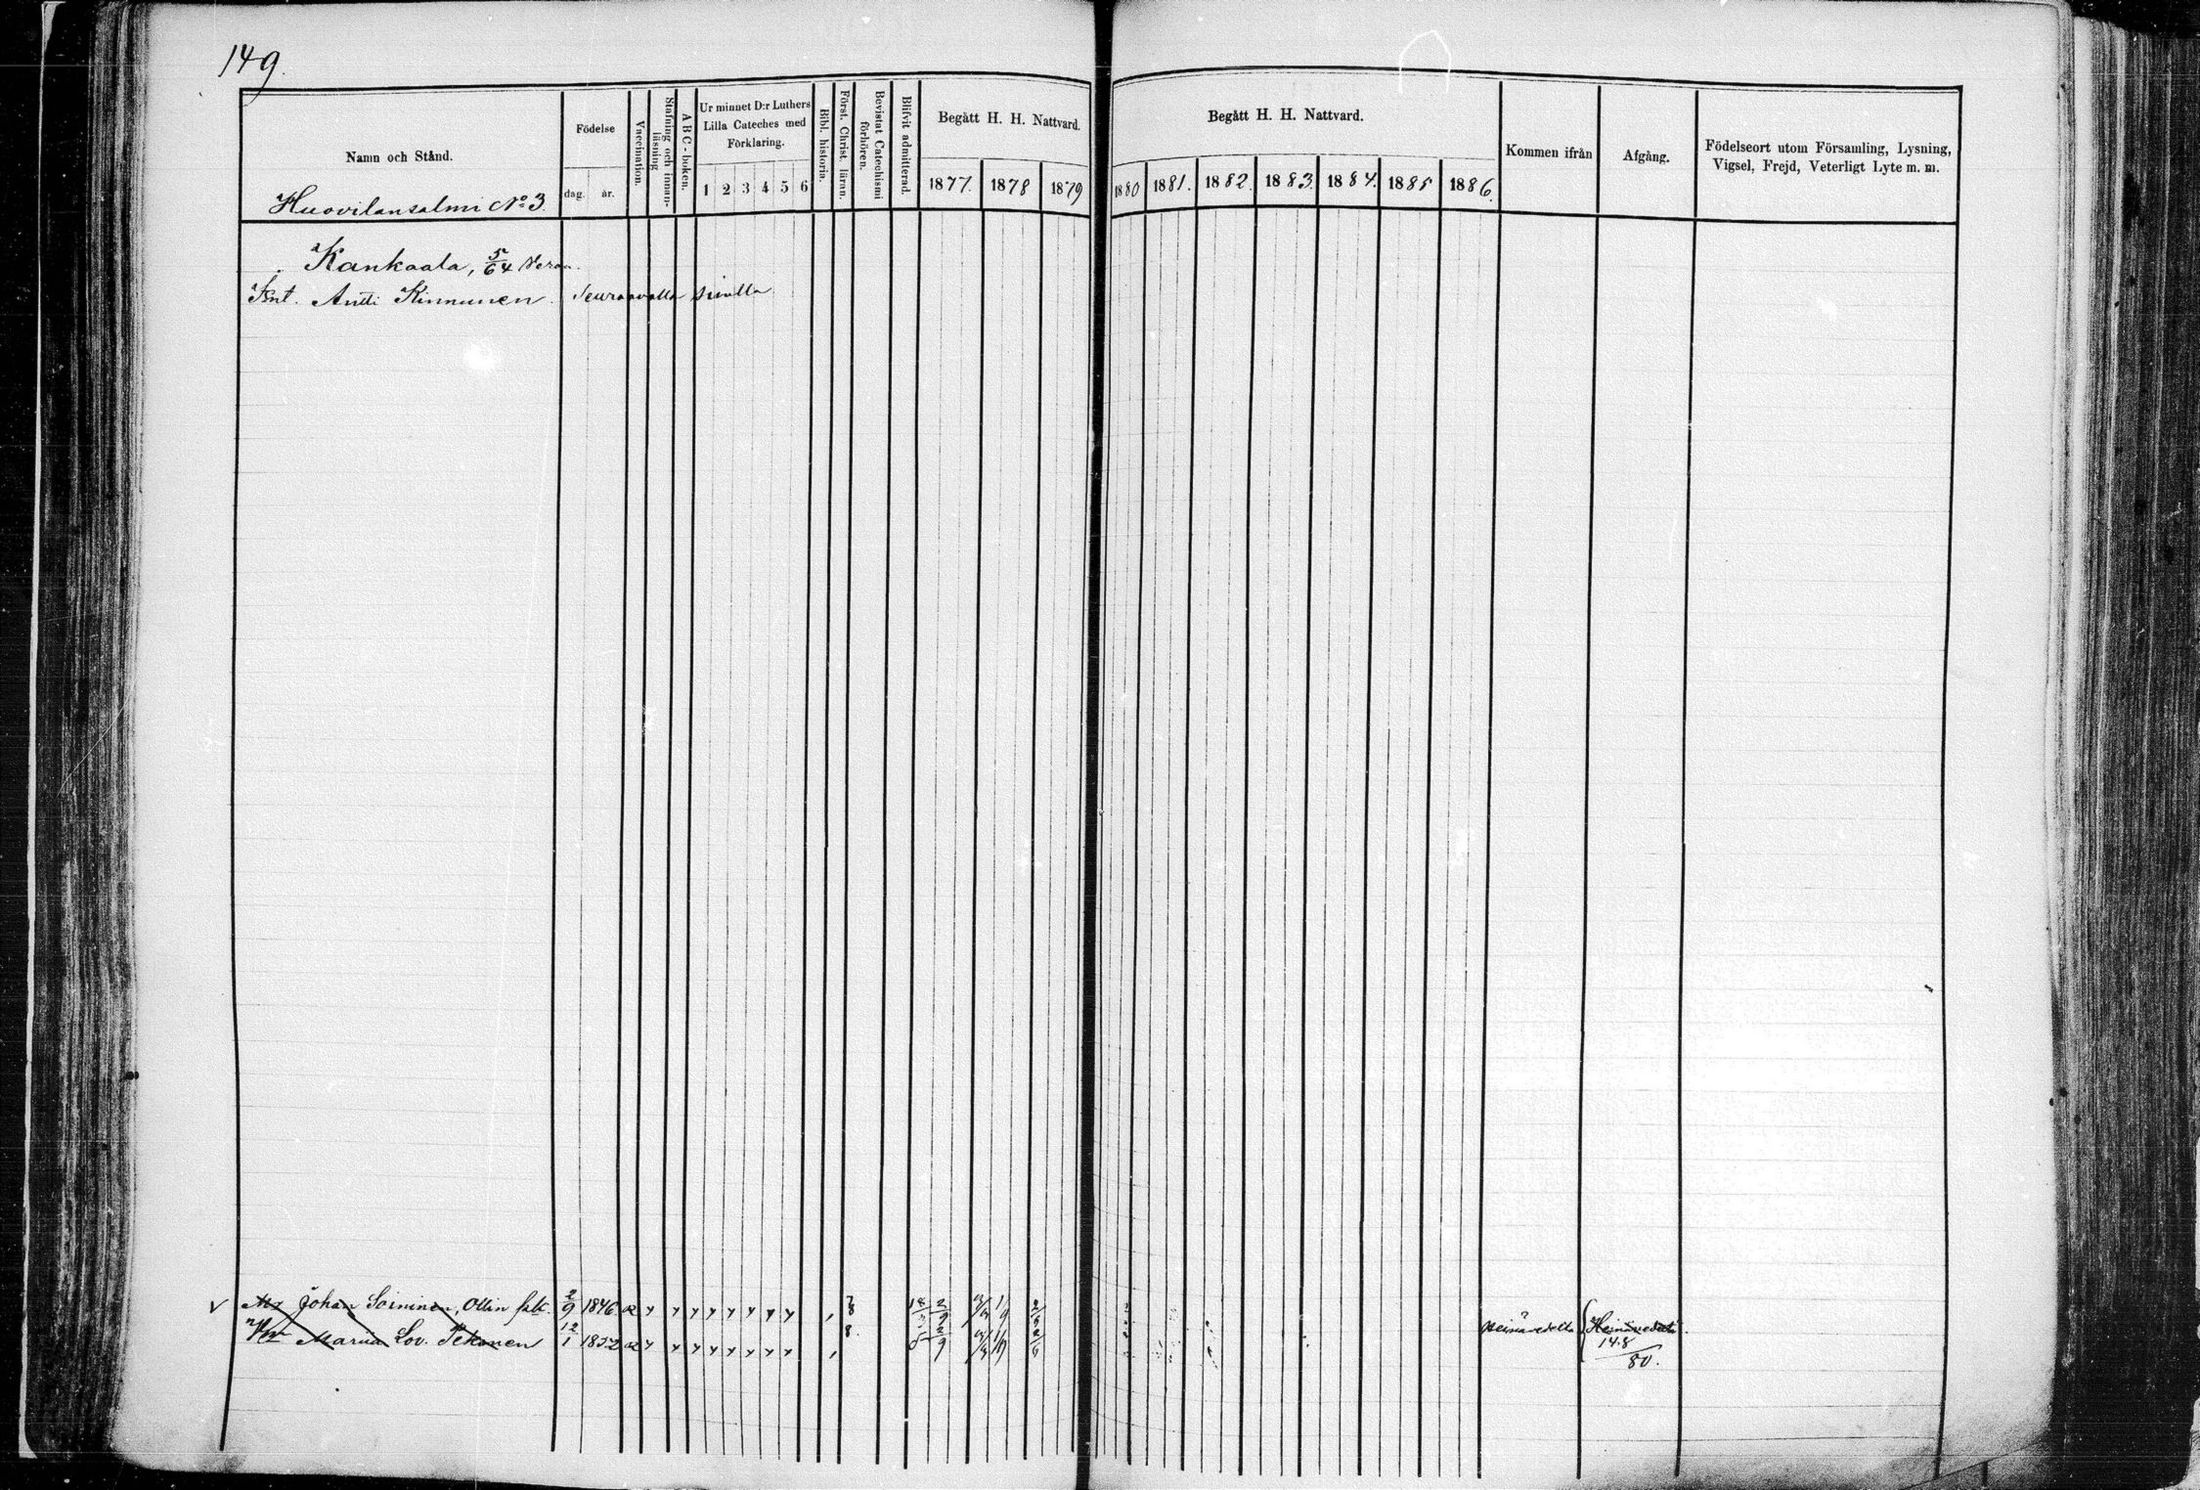 149.
Namn och Stånd.
Huovilansalmi No 3.
Födelse
dag. år.
Vaccination.
Stafning och innan-
läsning
A B C-boken.
Ur minnet D:r Luthers
Lilla Cateches med
Förklaring.
1 2 3 4 5 6
Bibl. historia.
Först. Christ. läran.
Bevistat Catechismi
förhören.
Blifvit admitterad.
Begått H. H. Nattvard.
1877. 1878 1879
Begått H. H. Nattvard.
1880 1881. 1882. 1883. 1884. 1885 1886.
Kommen ifrån
Afgång.
Födelseort utom Församling, Lysning,
Vigsel, Frejd, Veterligt Lyte m. m.
Kankaala, 5/64
Antti Kinnunen. Seuraavalla sivulla
Johan Soininen, Ollin 2/9 1846
Maria Lov. Pekonen 12/1 1852
Heinävedeltä
14.8
80.